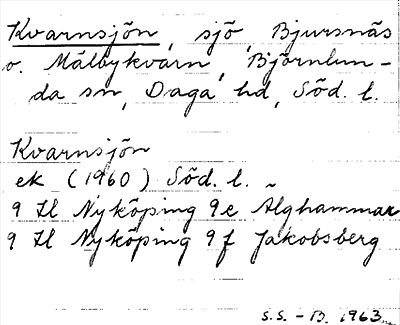 Kvarnsjön, sjö, Bjursnäs
o. Mälbykvarn, Björnlun-
da sn, Daga hd, Söd. l.
Kvarnsjön
ek (1960) Söd. l.
9 H Nyköping 9e Älghammar
9 H Nyköping 9f Jakobsberg
S.S. - B. 1963